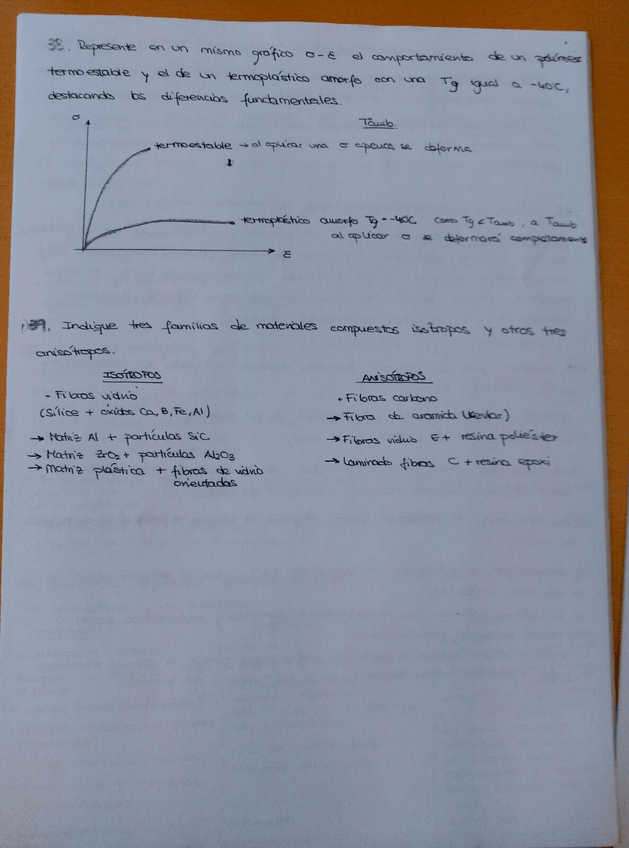 38. Represente en un mismo gráfico σ-ε el comportamiento de un polímero
termoestable y el de un termoplástico amorfo con una Tg igual a -40ºC,
destacando las diferencias fundamentales.
σ
Tamb.
termoestable → al aplicar una σ apenas se deforma
termoplástico amorfo Tg=-40ºC como Tg < Tamb, a Tamb
al aplicar σ se deformará completamente
ε
39. Indique tres familias de materiales compuestos isótropos y otros tres
anisótropos.
ISÓTROPOS
- Fibras vidrio
(Sílice + óxidos Ca, B, Fe, Al)
→ Matriz Al + partículas SiC
→ Matriz ZrO2 + partículas Al2O3
→ Matriz plástica + fibras de vidrio
orientadas
ANISÓTROPOS
- Fibras carbono
→ Fibra de aramida (Kevlar)
→ Fibras vidrio E + resina poliéster
→ Laminado fibras C + resina epoxi